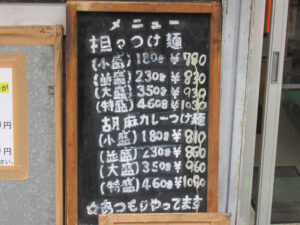 メニュー
担々つけ麺
(小盛)180g ¥780
(並盛)230g ¥830
(大盛)350g ¥930
(特盛)460g ¥1030
胡麻カレーつけ麺
(小盛)180g ¥810
(並盛)230g ¥860
(大盛)350g ¥960
(特盛)460g ¥1060
☆あつもりやってます
が
円
円
さい。